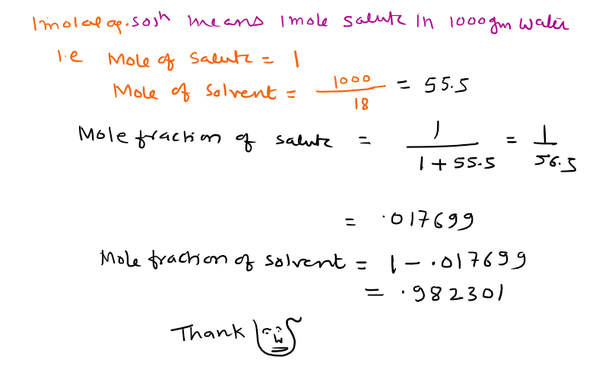 1molal aq. sosh means 1mole salute in 1000gm water
i.e Mole of Salute = 1
Mole of Solvent = 1000/18 = 55.5
Mole fraction of salute = 1/(1+55.5) = 1/56.5
= .017699
Mole fraction of solvent = 1 - .017699
= .982301
Thank